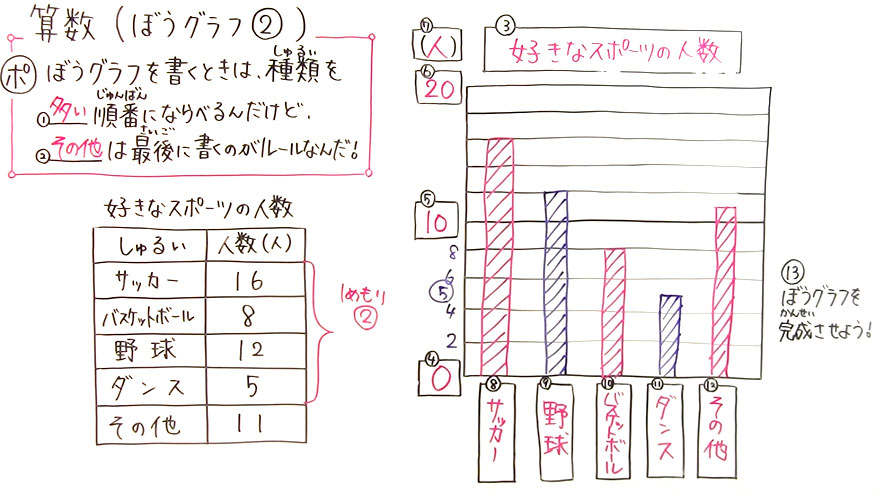 算数(ぼうグラフ②)
ポ ぼうグラフを書くときは、種類を
しゅるい
①多い順番にならべるんだけど、
じゅんばん
②その他は最後に書くのがルールなんだ!
さいご
好きなスポーツの人数
しゅるい 人数(人)
サッカー 16
バスケットボール 8
野球 12
ダンス 5
その他 11
1めもり
②
⑦
(人)
③
好きなスポーツの人数
⑥
20
⑤
10
8
6
⑤
4
2
④
0
⑧
サッカー
⑨
野球
⑩
バスケットボール
⑪
ダンス
⑫
その他
⑬
ぼうグラフを
かんせい
完成させよう!